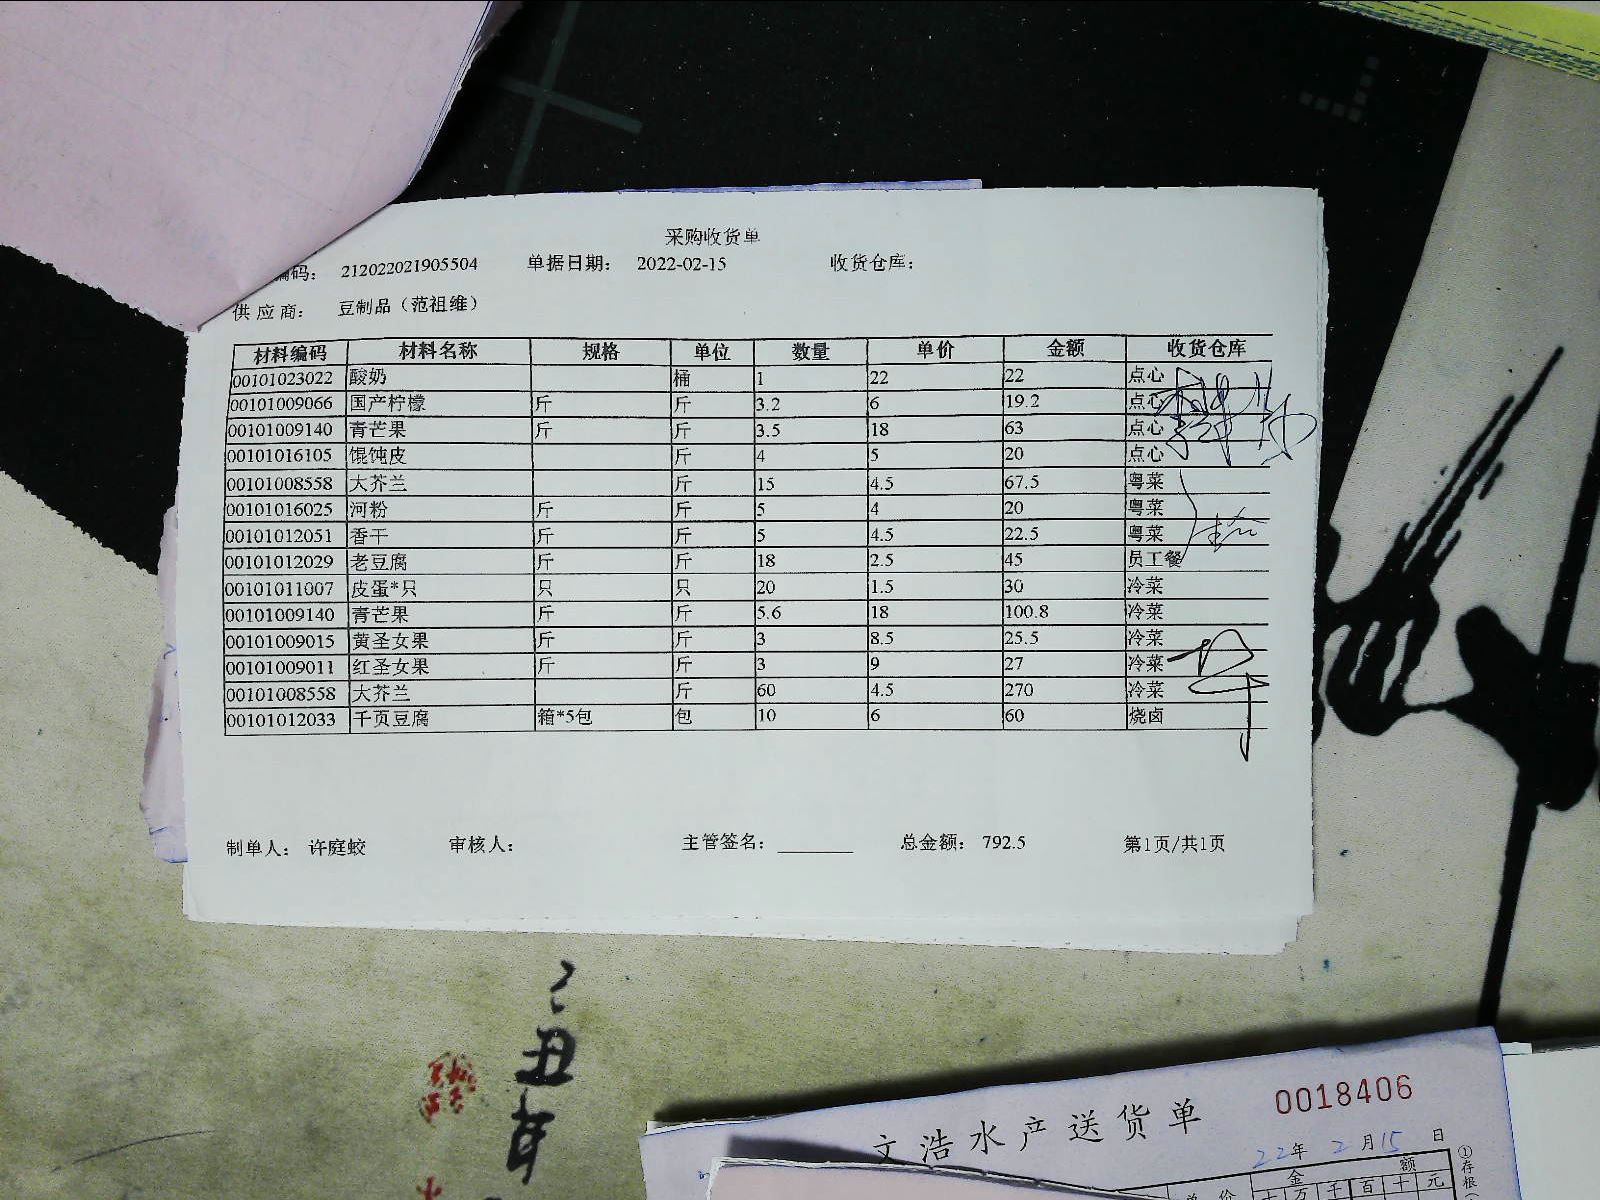 采购收货单
编码： 212022021905504 单据日期： 2022-02-15 收货仓库：
供应商： 豆制品（范祖维）
材料编码 材料名称 规格 单位 数量 单价 金额 收货仓库
00101023022 酸奶 桶 1 22 22 点心
00101009066 国产柠檬 斤 斤 3.2 6 19.2 点心
00101009140 青芒果 斤 斤 3.5 18 63 点心
00101016105 馄饨皮 斤 4 5 20 点心
00101008558 大芥兰 斤 15 4.5 67.5 粤菜
00101016025 河粉 斤 斤 5 4 20 粤菜
00101012051 香干 斤 斤 5 4.5 22.5 粤菜
00101012029 老豆腐 斤 斤 18 2.5 45 员工餐
00101011007 皮蛋*只 只 只 20 1.5 30 冷菜
00101009140 青芒果 斤 斤 5.6 18 100.8 冷菜
00101009015 黄圣女果 斤 斤 3 8.5 25.5 冷菜
00101009011 红圣女果 斤 斤 3 9 27 冷菜
00101008558 大芥兰 斤 60 4.5 270 冷菜
00101012033 千页豆腐 箱*5包 包 10 6 60 烧卤
制单人： 许庭蛟 审核人： 主管签名： 总金额： 792.5 第1页/共1页
丑年
文浩水产送货单 0018406
22年 2月15日
①存根
单价 金额
万千百十元